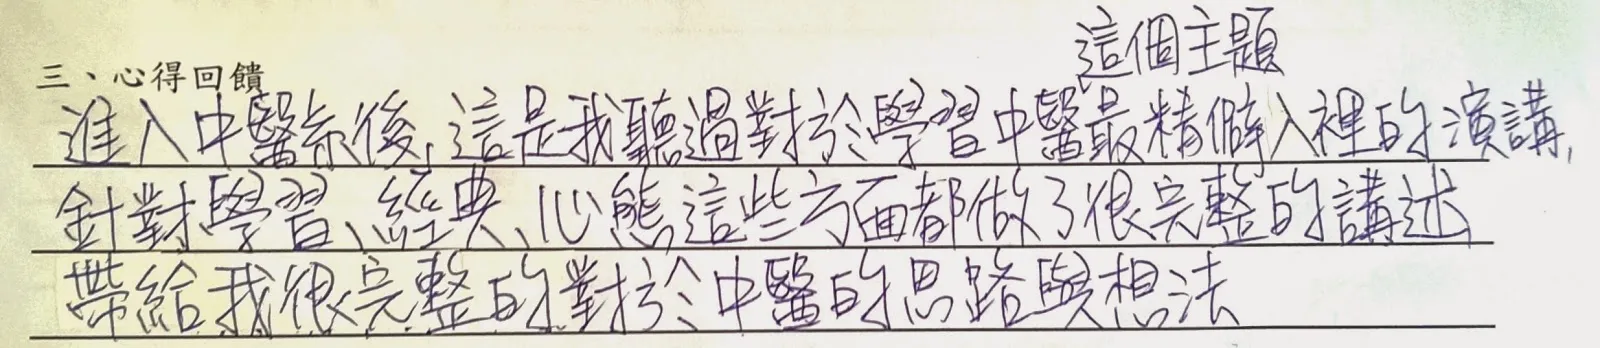 三、心得回饋
這個主題
進入中醫系後,這是我聽過對於學習中醫最精僻入裡的演講,
針對學習、經典、心態這些方面都做了很完整的講述
帶給我很完整的對於中醫的思路與想法